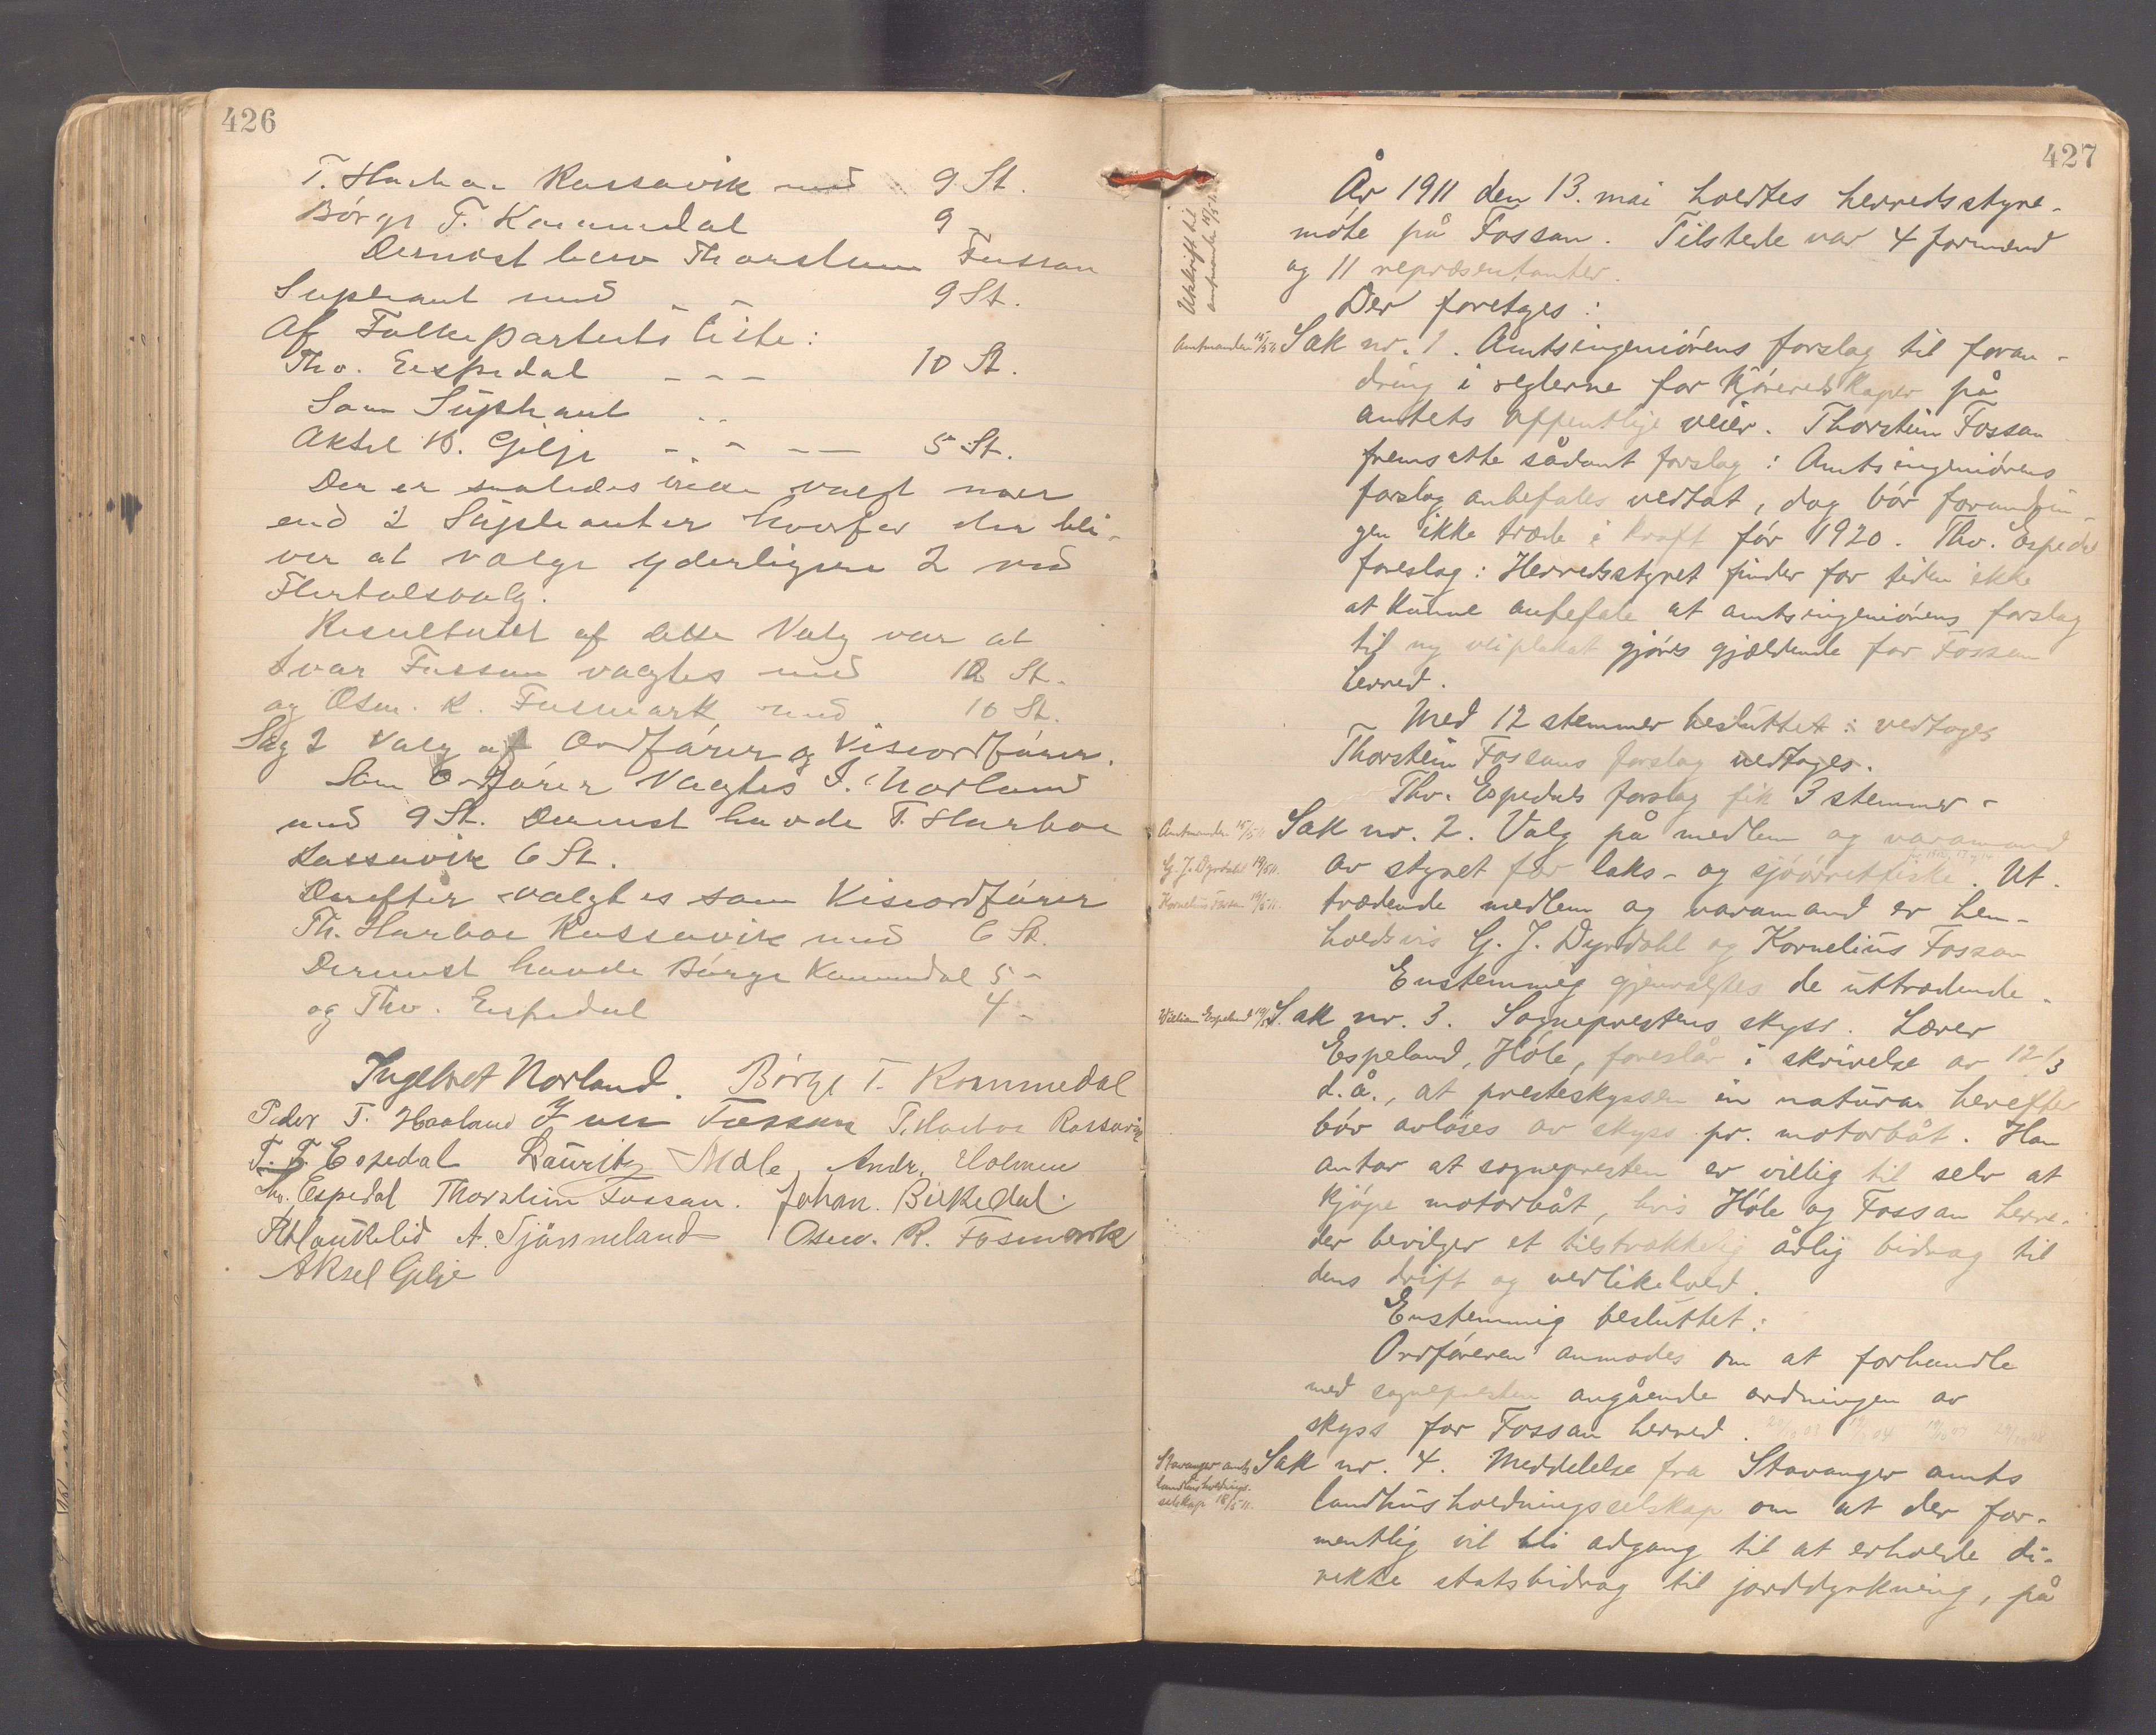 426
T. Harboe Rossavik med 9 St.
Börge T. Kommedal 9 -
Dernæst blev Thorstein Fossan
Supleant med - - 9 St.
Af Folkepartiets Liste:
Thv. Espedal - - - 10 St.
Som Supleant - -
Aksel B. Gilje - - - - 5 St.
Der er saaledes ikke valgt mer
end 2 Supleanter hvorfor der bli-
ver at vælge yderligere 2 ved
Flertalsvalg.
Resultatet af dette Valg var at
Ivar Fossan valgtes med 12 St.
og Osm. R. Fosmark med 10 St.
Sag 2 Valg af Ordfører og Viseordfører.
Som Ordfører Valgtes I. Norland
med 9 St. Dernest havde T. Harboe
Rossavik 6 St.
Derefter valgtes som Viseordfører
Th. Harboe Rossavik med 6 St.
Dernest havde Börge Kommedal 5 -
og Thv. Espedal 4 -
Ingebret Norland. Börge T. Kommedal
Peder T. Haaland Ivar Fossan T. Harboe Rossavik
T. T. Espedal Lauritz Mæle Andr. Holmen
Thv. Espedal Thorstein Fossan. Johan Birkedal.
R Haukelid A. Tjörsneland Osm. R. Fosmark
Aksel Gilje
427
Utskrift til
amtmanden 15/5 11
År 1911 den 13. mai holdtes herredsstyre-
möte på Fossan. Tilstede var 4 formænd
og 11 repræsentanter.
Der foretoges:
Amtmanden 15/5 11
Sak nr. 1. Amtsingeniörens forslag til foran-
dring i reglerne for kjöreredskaper på
amtets offentlige veier. Thorstein Fossan
fremsatte sådant forslag: Amtsingeniörens
forslag anbefales vedtat, dog bör forandrin-
gen ikke træde i kraft för 1920. Thv. Espedal
foreslog: Herredsstyret finder for tiden ikke
at kunne anbefale at amtsingeniörens forslag
til ny veiplakat gjöres gjældende for Fossan
herred.
Med 12 stemmer besluttet: vedtoges
Thorstein Fossans forslag vedtages.
Thv. Espedals forslag fik 3 stemmer -
Amtmanden 15/5 11
G. J. Dyrdahl 19/5 11.
Kornelius Fossan 19/5 11.
Sak nr. 2. Valg på medlem og varamand
av styret for laks- og sjöörretfiske. Ut-
trædende medlem og varamand er hen-
holdsvis G. J. Dyrdahl og Kornelius Fossan
Enstemmig gjenvalgtes de uttrædende.
William Espeland 19/5 11
Sak nr. 3. Sogneprestens skyss. Lærer
Espeland, Höle, foreslår i skrivelse av 12/3
d.å., at presteskyssen in natura herefter
bör avlöses av skyss pr. motorbåt. Han
antar at sognepresten er villig til selv at
kjöpe motorbåt, hvis Höle og Fossan herre-
der bevilger et tilstrækkelig årlig bidrag til
dens drift og vedlikehold.
Enstemmig besluttet:
Ordföreren anmodes om at forhandle
med sognepresten angående ordningen av
skyss for Fossan herred.
Stavanger amts
landhusholdnings-
selskap 18/5 11.
Sak nr. 4. Meddelelse fra Stavanger amts
landhusholdningsselskap om at der for-
mentlig vil bli adgang til at erholde di-
rekte statsbidrag til jorddyrkning, på